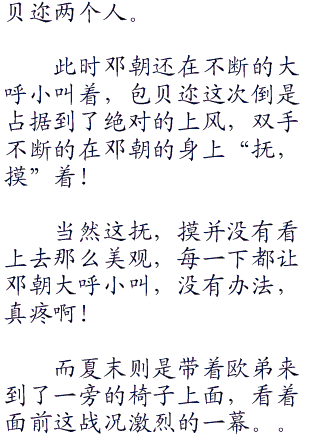 贝迩两个人。
此时邓朝还在不断的大
呼小叫着，包贝迩这次倒是
占据到了绝对的上风，双手
不断的在邓朝的身上“抚，
摸”着！
当然这抚，摸并没有看
上去那么美观，每一下都让
邓朝大呼小叫，没有办法，
真疼啊！
而夏末则是带着欧弟来
到了一旁的椅子上面，看着
面前这战况激烈的一幕。。